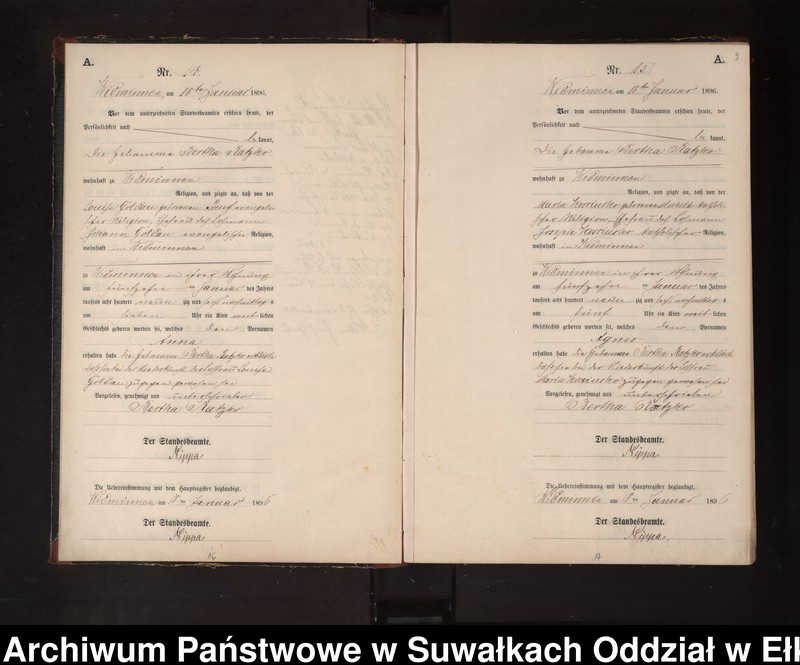 A.
Nr. 14.
Widminnen am 18ten Januar 1896.
Vor dem unterzeichneten Standesbeamten erschien heute, der
Persönlichkeit nach
be kannt,
die Hebamme Bertha Ratzko
wohnhaft zu Widminnen
Religion, und zeigte an, daß von der
Louise geborenen evangeli-
scher Religion, Ehefrau des Losmann
Johann evangelischer Religion,
wohnhaft in Widminnen
zu Widminnen in ihrer Wohnung
am fünfzehn ten Januar des Jahres
tausend acht hundert neun zig und sechs Nachmittag s
um sieben Uhr ein Kind weib lichen
Geschlechts geboren worden sei, welches den Vornamen
Anna
erhalten habe die Hebamme Bertha Ratzko erklärte
daß sie bei der Niederkunft der Losfrau Louise
zugegen gewesen sei
Vorgelesen, genehmigt und unterschrieben
Bertha Ratzko
Der Standesbeamte.
Nippa
Die Uebereinstimmung mit dem Hauptregister beglaubigt.
Widminnen am 18ten Januar 1896
Der Standesbeamte.
Nippa
A. 3
Nr. 15.
Widminnen am 18ten Januar 1896.
Vor dem unterzeichneten Standesbeamten erschien heute, der
Persönlichkeit nach
be kannt,
die Hebamme Bertha Ratzko
wohnhaft zu Widminnen
Religion, und zeigte an, daß von der
Maria geborenen katho-
lischer Religion, Ehefrau des Losmann
Joseph katholischer Religion,
wohnhaft in Widminnen
zu Widminnen in ihrer Wohnung
am fünfzehn ten Januar des Jahres
tausend acht hundert neun zig und sechs Nachmittag s
um fünf Uhr ein Kind weib lichen
Geschlechts geboren worden sei, welches den Vornamen
Agnes
erhalten habe die Hebamme Bertha Ratzko erklärte
daß sie bei der Niederkunft der Losfrau
Maria zugegen gewesen sei
Vorgelesen, genehmigt und unterschrieben
Bertha Ratzko
Der Standesbeamte.
Nippa
Die Uebereinstimmung mit dem Hauptregister beglaubigt.
Widminnen am 18ten Januar 1896
Der Standesbeamte.
Nippa
Archiwum Państwowe w Suwałkach Oddział w Ełk